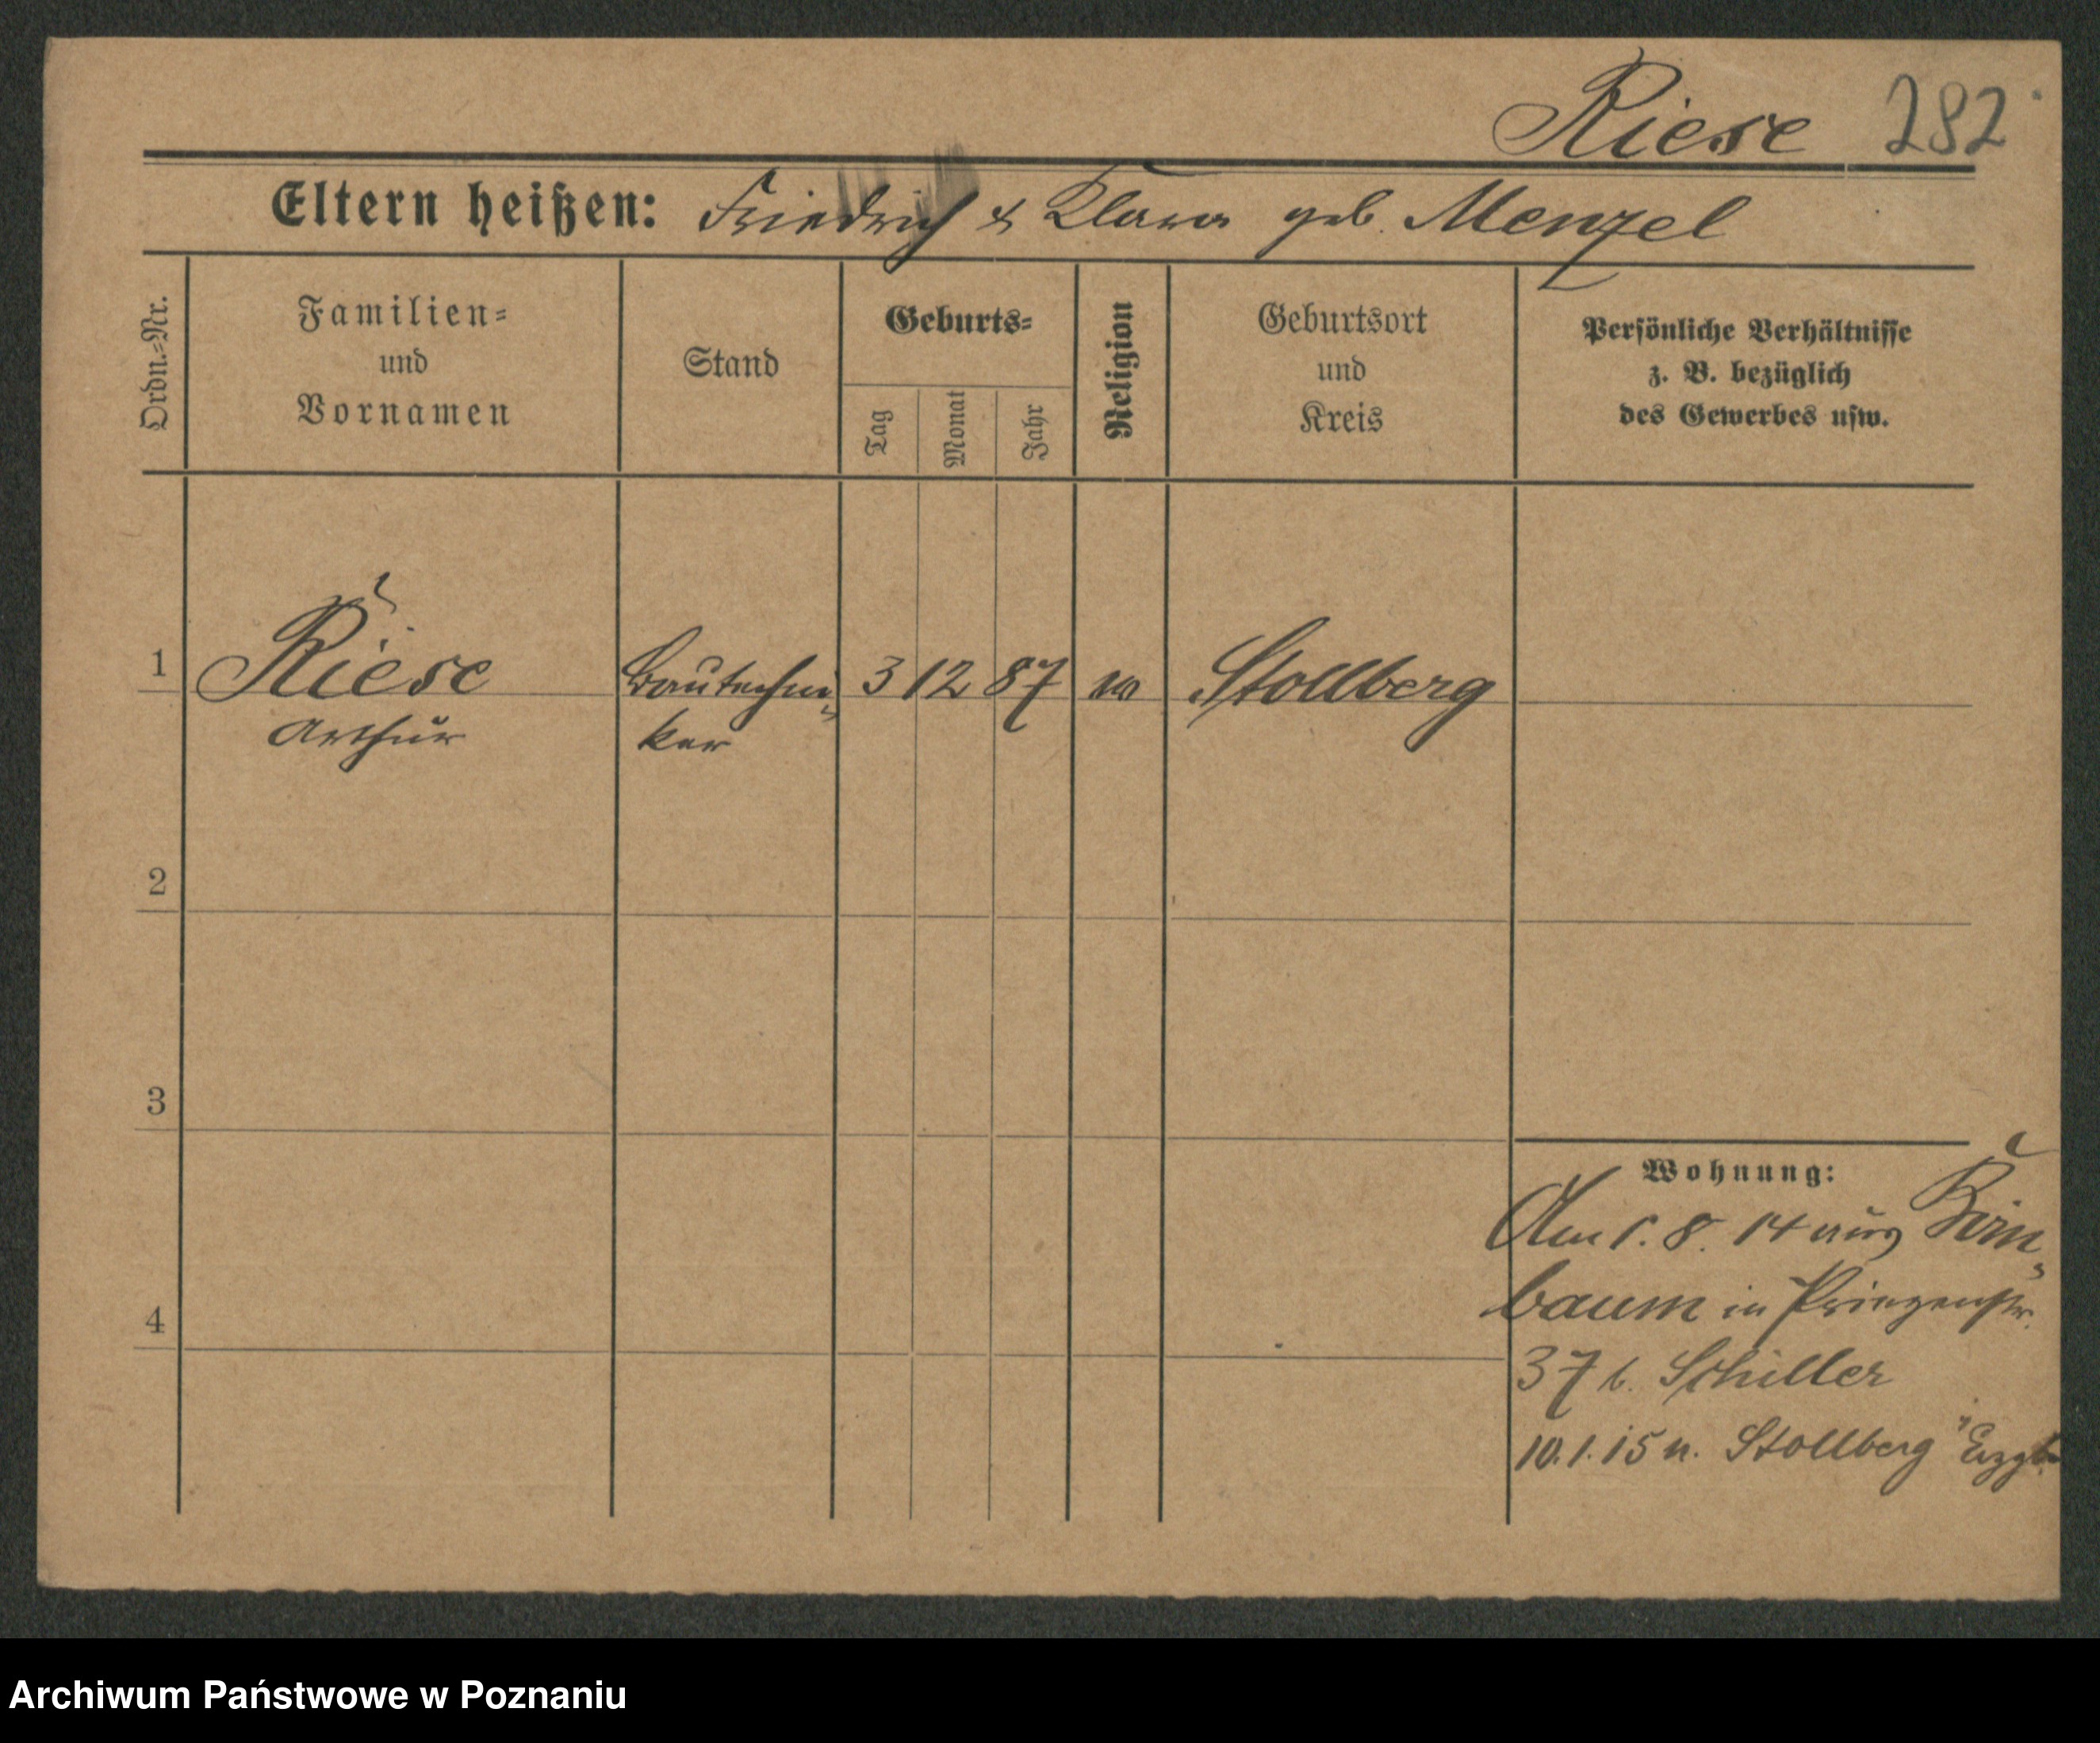 Riese 282
Eltern heißen: Friedrich & Klara geb. Menzel
Ordn.-Nr.
Familien-
und
Vornamen
Stand
Geburts-
Tag
Monat
Jahr
Religion
Geburtsort
und
Kreis
Persönliche Verhältnisse
z. B. bezüglich
des Gewerbes usw.
1 Riese Bautechni- 3 12 87 Stollberg
Arthur ker
2
3
Wohnung:
Am 1. 8. 14 aus Birn-
baum in Prinzenstr.
4
37 b. Schiller
10.1.15 n. Stollberg Erzgb.
Archiwum Państwowe w Poznaniu